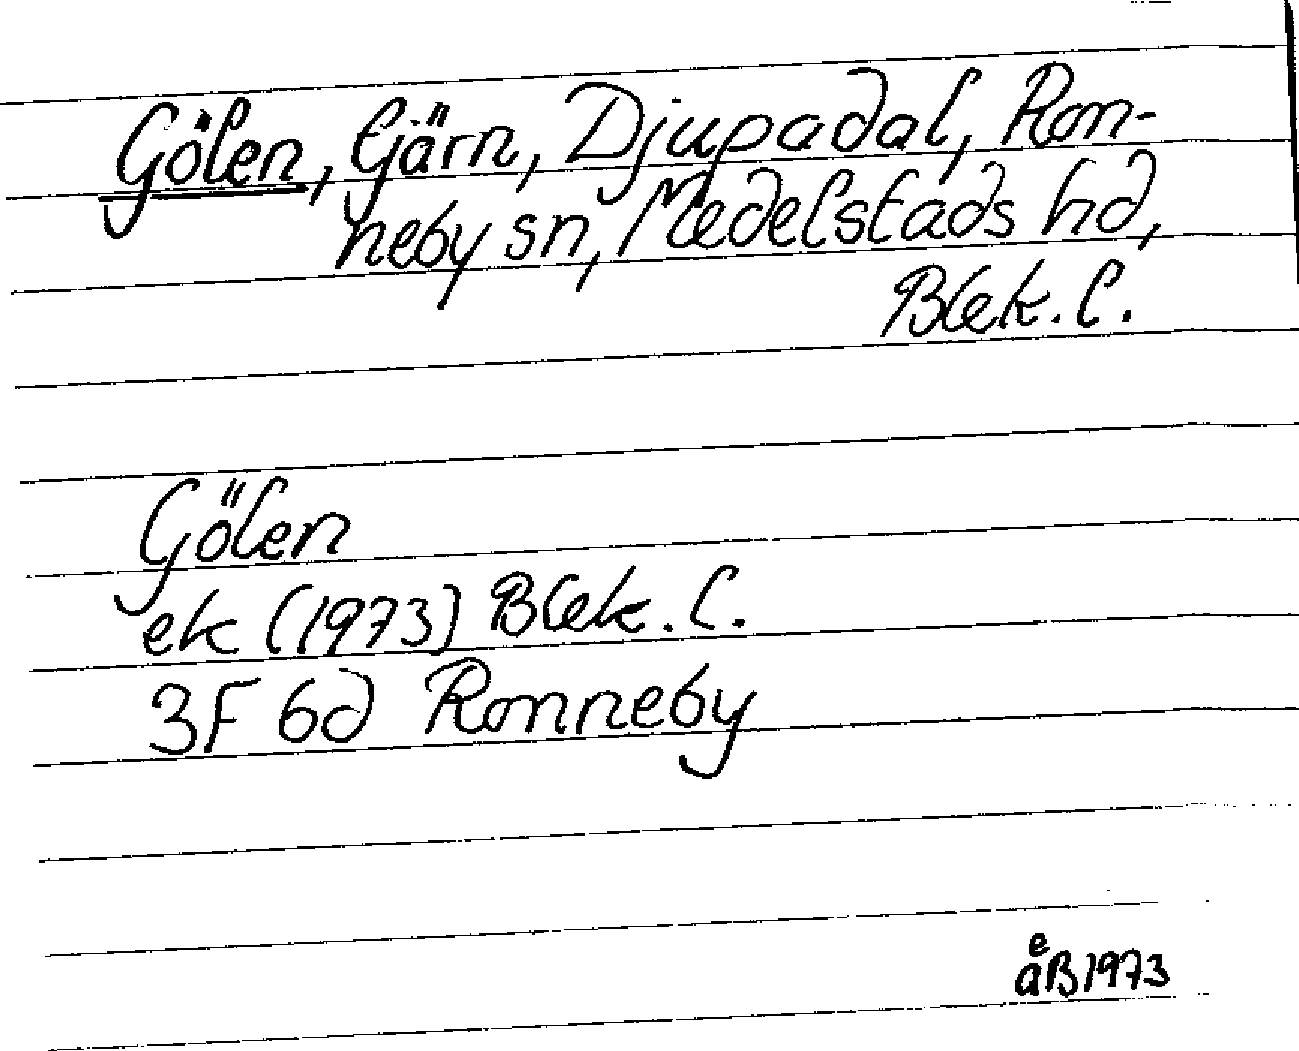 Gölen, Gärn, Djupadal, Ron-
neby sn, Medelstads hd,
Blek. l.
Gölen
ek (1973) Blek. l.
3F 6d Ronneby
e
åB 1973